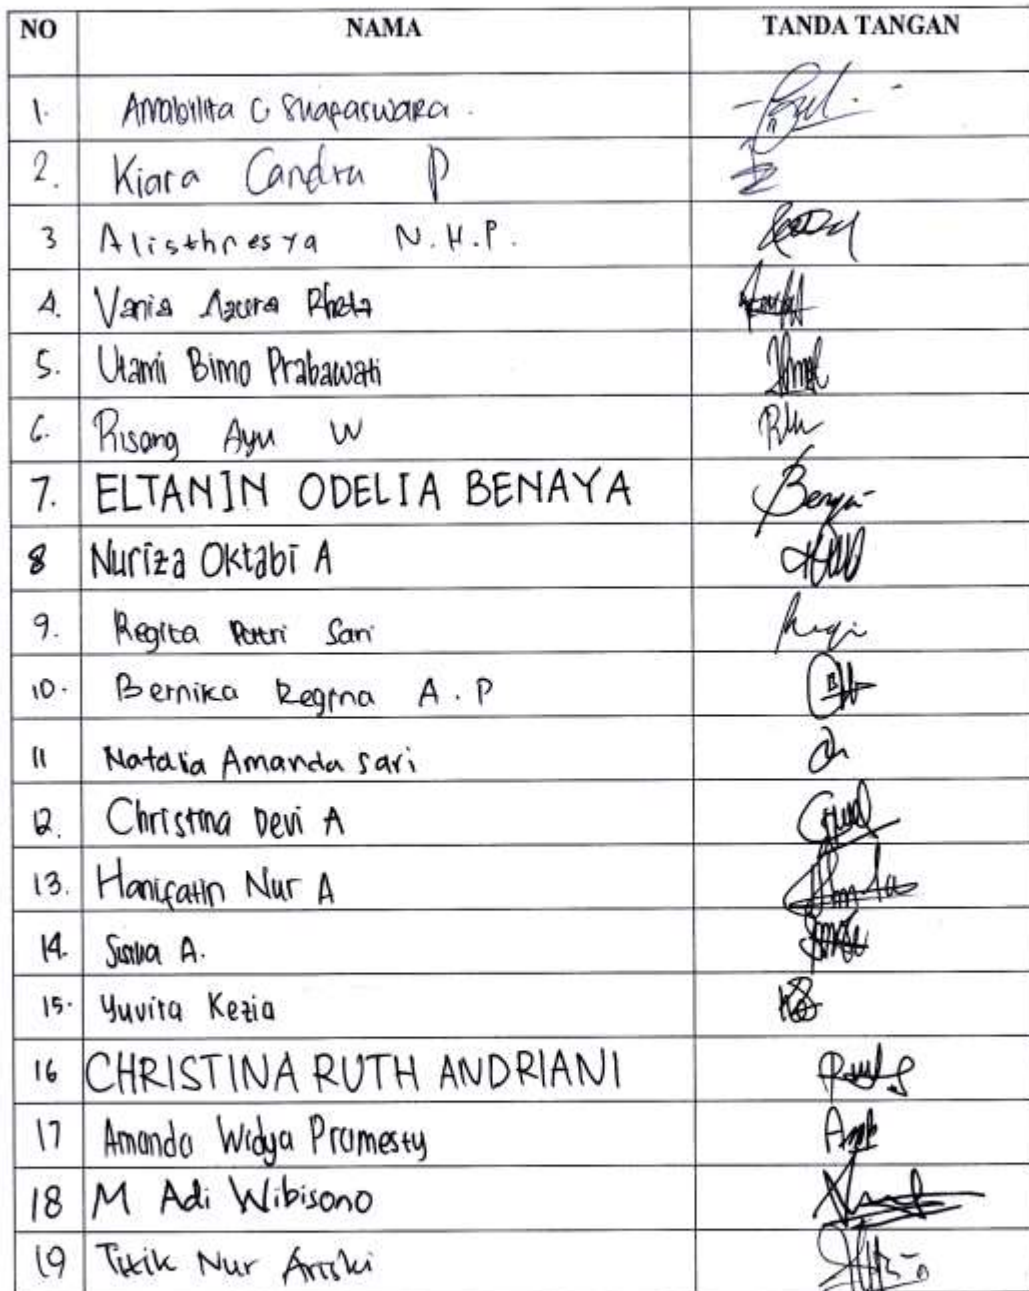 NO NAMA TANDA TANGAN
1. Amabilita C
2. Kiara Candra P
3 Alisthresya N.H.P.
4. Vania Azura Rheta
5. Utami Bimo Prabawati
6. Risang Ayu W
7. ELTANIN ODELIA BENAYA
8 Nuriza Oktabi A
9. Regita Putri Sari
10. Bernika Regina A.P
11 Natalia Amanda sari
12. Christina Devi A
13. Hanifatin Nur A
14. A.
15. Yuvita Kezia
16 CHRISTINA RUTH ANDRIANI
17 Amanda Widya Pramesty
18 M Adi Wibisono
19 Titik Nur Ariski